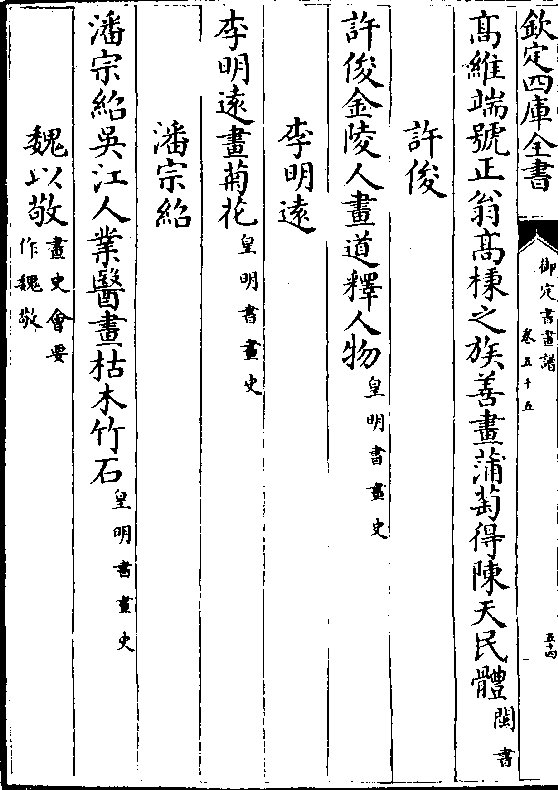 欽定四庫全書
御定書畫譜
卷五十五
五十四
髙維端號正翁髙棅之族善畫蒲萄得陳天民體閩書
許俊
許俊金陵人畫道釋人物皇明書畫史
李明遠
李明遠畫菊花皇明書畫史
潘宗紹
潘宗紹吳江人業醫畫枯木竹石皇明書畫史
魏以敬畫史會要作魏敬